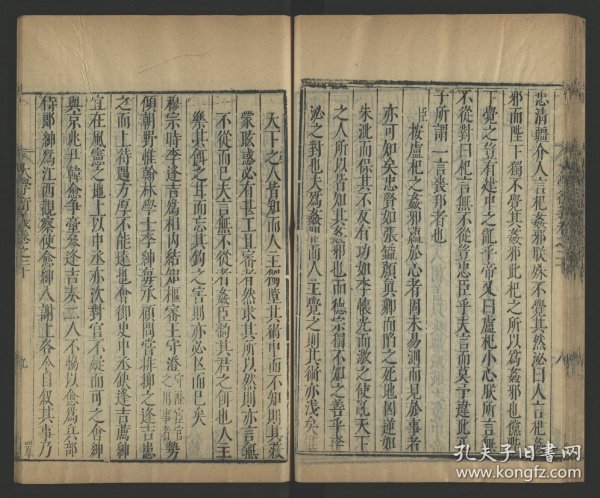 忠清彊介人言杞姦邪朕殊不覺其然泌曰人言杞姦
邪而陛下獨不覺其姦邪此杞之所以為姦邪也儻陛
下覺之豈有建中之亂乎帝又曰盧杞小心朕所言無
不從對曰杞言無不從豈忠臣乎夫言而莫予違此孔
子所謂一言喪邦者也
臣按盧杞之姦邪蘊於心者固未易測而見於事者
亦可知矣忠賢如張鎰顏真卿而陷之死地凶逆如
朱泚而保其不反有功如李懷光而激之使亂天下
之人所以皆知其姦邪也而德宗獨不知之善乎李
泌之對也夫為姦而人主覺之則其術亦淺矣
天下之人皆知而人主獨墮其術中而不知則其蔽
蒙眩惑必有甚工且密者然求其所以然則亦言無
不從而已夫言無不從者姦臣釣其君之餌也人主
樂其餌之甘而忘其鉤之害則亦必亡而已矣
穆宗時李逢吉為相內結知樞密王守澄守澄宦官之用事者勢
傾朝野惟翰林學士李紳每承顧問常排抑之逢吉患
之而上待遇方厚不能遠也會御史中丞缺逢吉薦紳
宜在風憲之地上以中丞亦次對官不疑而可之會紳
與京兆尹韓愈爭臺參逢吉奏二人不協以愈為兵部
侍郎紳為江西觀察使愈紳入謝上各令自敘其事乃
大學衍義卷二十
九
孔夫子旧书网
www.kongfz.com